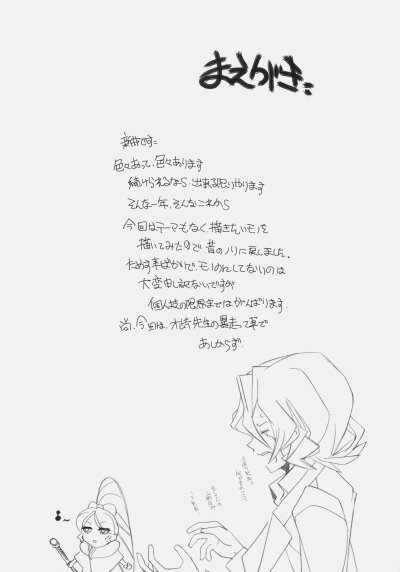 まえがき
新井です
色々あって、色々あります
続けられるなら、出来る限りやります
そんな一年、そんなこれから
今回はテーマもなく、描きたいモノを
描いてみたので、昔のノリに戻しました。
ためす事ばかりで、モノにしてないのは
大変申し訳ないですが
個人技の限界まではがんばります.
尚、今回は、木崎先生の暴走って事で
あしからず.